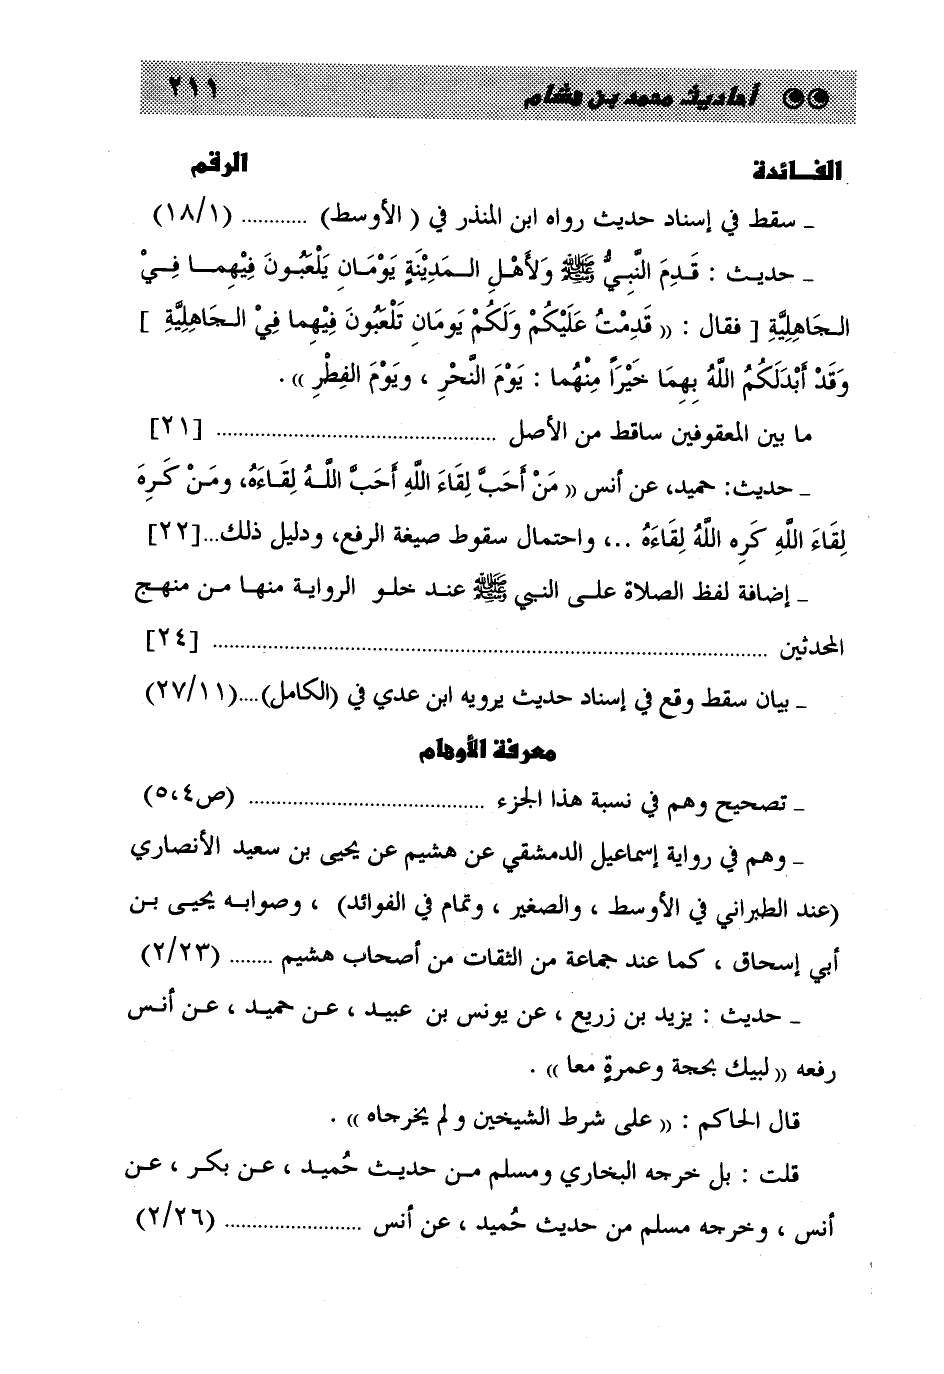 أحاديث محمد بن هشام ٢١١
الفـــائدة الرقم
ـ سقط في إسناد حديث رواه ابن المنذر في ( الأوسط) ............ (١٨/١)
ـ حديث : قَدِمَ النَّبِيُّ ﷺ وَلأَهْلِ الـمَدِيْنَةِ يَوْمَانِ يَلْعَبُونَ فِيْهِمـا فِـيْ
الـجَاهِلِيَّةِ [ فقال : (( قَدِمْتُ عَلَيْكُمْ وَلَكُمْ يَومَانِ تَلْعَبُونَ فِيْهِما فِيْ الـجَاهِلِيَّةِ ]
وَقَدْ أَبْدَلَكُمُ اللَّهُ بِهِمَا خَيْرَاً مِنْهُما : يَوْمَ النَّحْرِ ، ويَوْمَ الفِطْرِ )) .
ما بين المعقوفين ساقط من الأصل ........................................ [٢١]
ـ حديث: حميد، عن أنس (( مَنْ أَحَبَّ لِقَاءَ اللَّهِ أَحَبَّ اللَّـهُ لِقَـاءَهُ، ومَـنْ كَـرِهَ
لِقَاءَ اللَّهِ كَرِه اللَّهُ لِقَاءَهُ ..، واحتمال سقوط صيغة الرفع، ودليل ذلك...[٢٢]
ـ إضافة لفظ الصلاة علـى النبي ﷺ عنـد خلـو الروايـة منهـا مـن منهـج
المحدثين ................................................................................ [٢٤]
ـ بيان سقط وقع في إسناد حديث يرويه ابن عدي في (الكامل)....(٢٧/١١)
معرفة الأوهام
ـ تصحيح وهم في نسبة هذا الجزء .................................. (ص٥،٤)
ـ وهم في رواية إسماعيل الدمشقي عن هشيم عن يحيى بن سعيد الأنصاري
(عند الطبراني في الأوسط ، والصغير ، وتمام في الفوائد) ، وصوابـه يحيـى بـن
أبي إسحاق ، كما عند جماعة من الثقات من أصحاب هشيم ........ (٢/٢٣)
ـ حديث : يزيد بن زريع ، عن يونس بن عبيـد ، عـن حميـد ، عـن أنـس
رفعه (( لبيك بحجة وعمرةٍ معا )) .
قال الحاكم : (( على شرط الشيخين ولم يخرجاه )) .
قلت : بل خرجه البخاري ومسلم مـن حديـث حُميـد ، عـن بكر ، عـن
أنس ، وخرجه مسلم من حديث حُميد ، عن أنس ........................ (٢/٢٦)